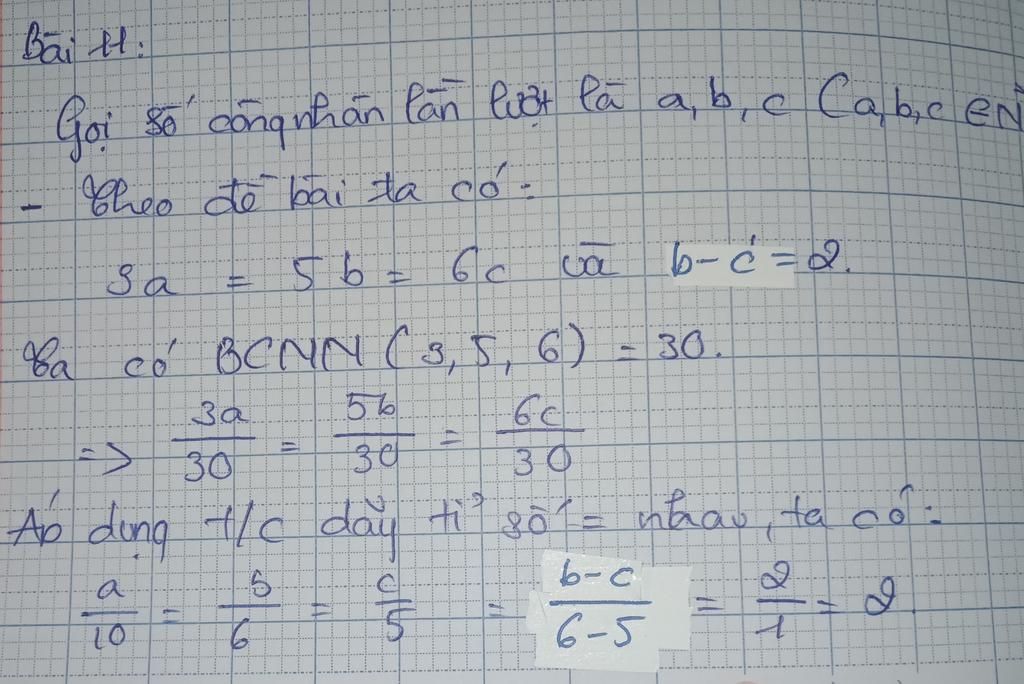 Bài 11:
Gọi số công nhân lần lượt là a, b, c (a,b,c ∈ N
- Theo đề bài ta có:
3a = 5b = 6c và b - c = 2.
Ta có BCNN (3, 5, 6) = 30.
=> 3a/30 = 5b/30 = 6c/30
Áp dụng t/c dãy tỉ số = nhau, ta có:
a/10 = b/6 = c/5 = b-c/6-5 = 2/1 = 2